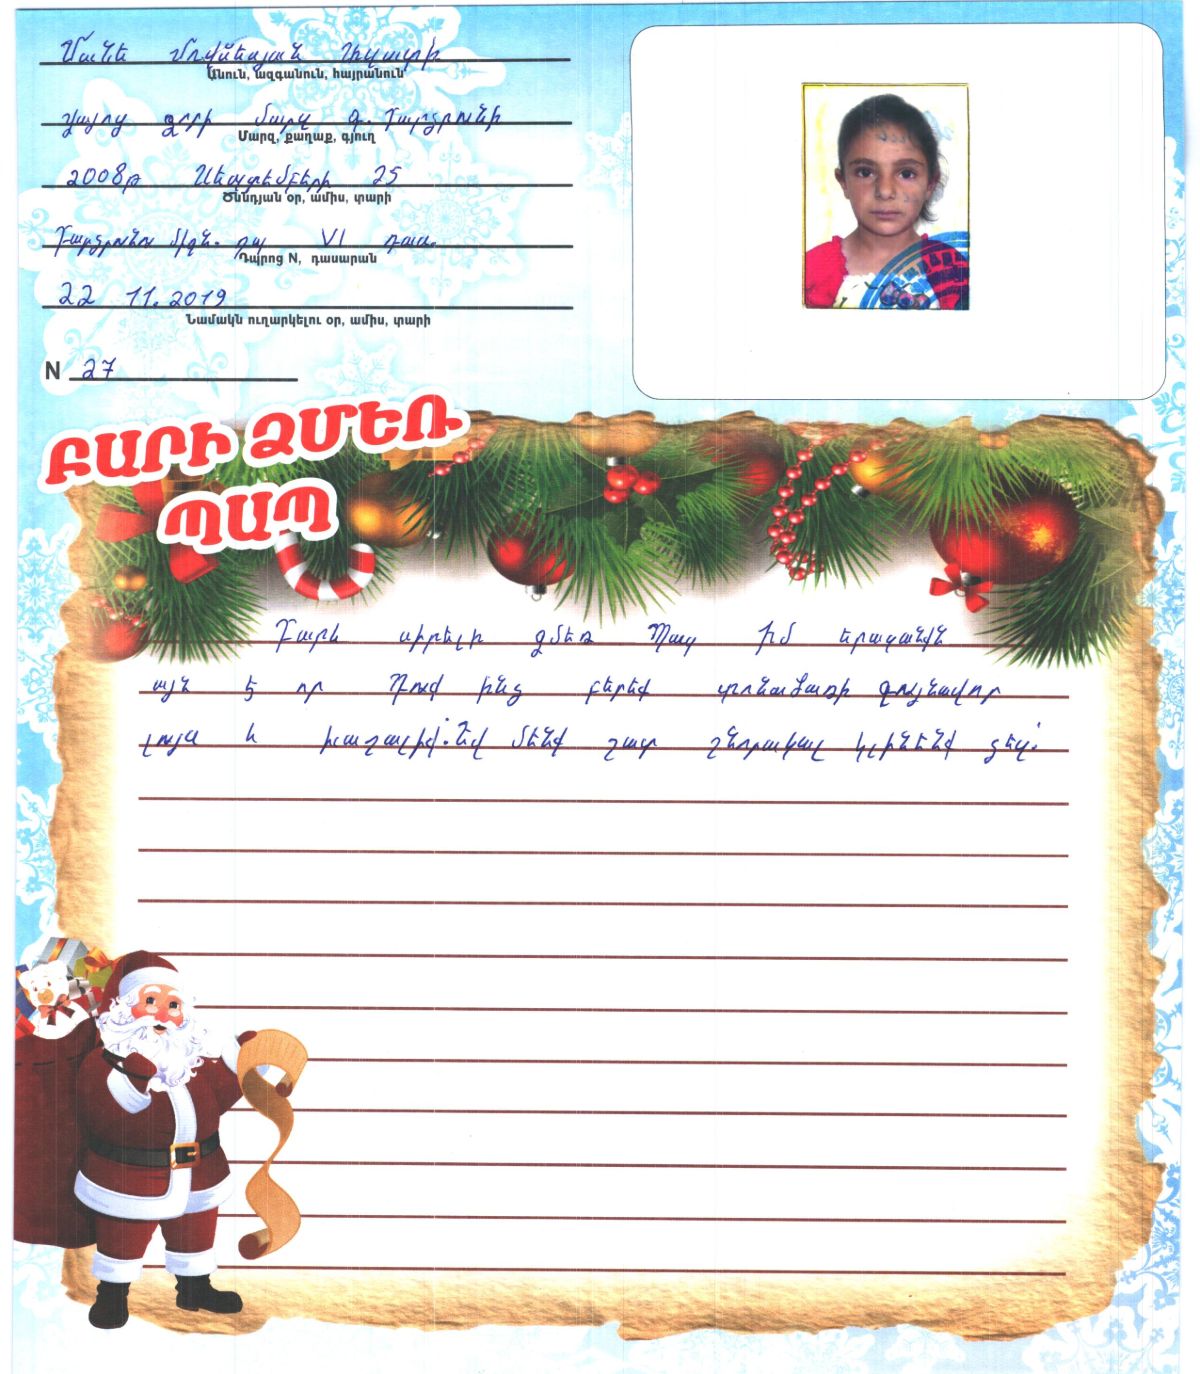 Մանե Մովսեսյան
Անուն, ազգանուն, հայրանուն
Վայոց ձորի մարզ գ.
Մարզ, քաղաք, գյուղ
2008թ Սեպտեմբերի 25
Ծննդյան օր, ամիս, տարի
միջն. դպ VI դաս.
Դպրոց N, դասարան
22 11.2019
Նամակն ուղարկելու օր, ամիս, տարի
N 27
ԲԱՐԻ ՁՄԵՌ
ՊԱՊ
Բարև սիրելի ձմեռ Պապ իմ երազանքն
այն է որ Դուք ինձ բերեք տոնածառի գույնավոր
լույս և խաղալիք: Եվ մենք շատ շնորակալ կլինենք ձեզ: